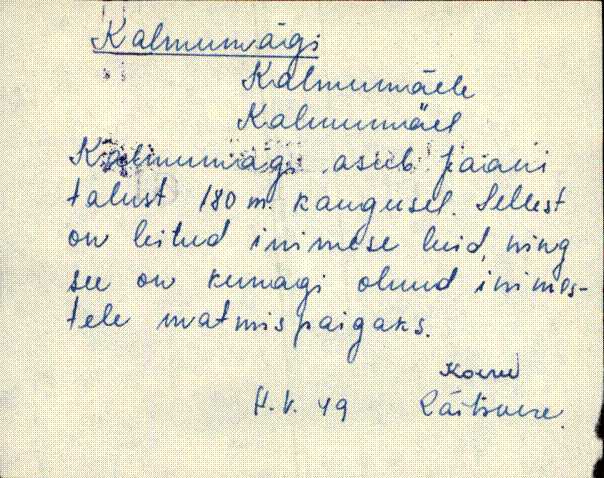 Kalmumägi
Kalmumäele
Kalmumäel
Kalmumägi asub Jaani
talust 180 m. kaugusel. Sellest
on leitud inimese luid, ning
see on kunagi olnud inimes-
tele matmispaigaks.
Koeru
H.V. 49 Räitsvere.